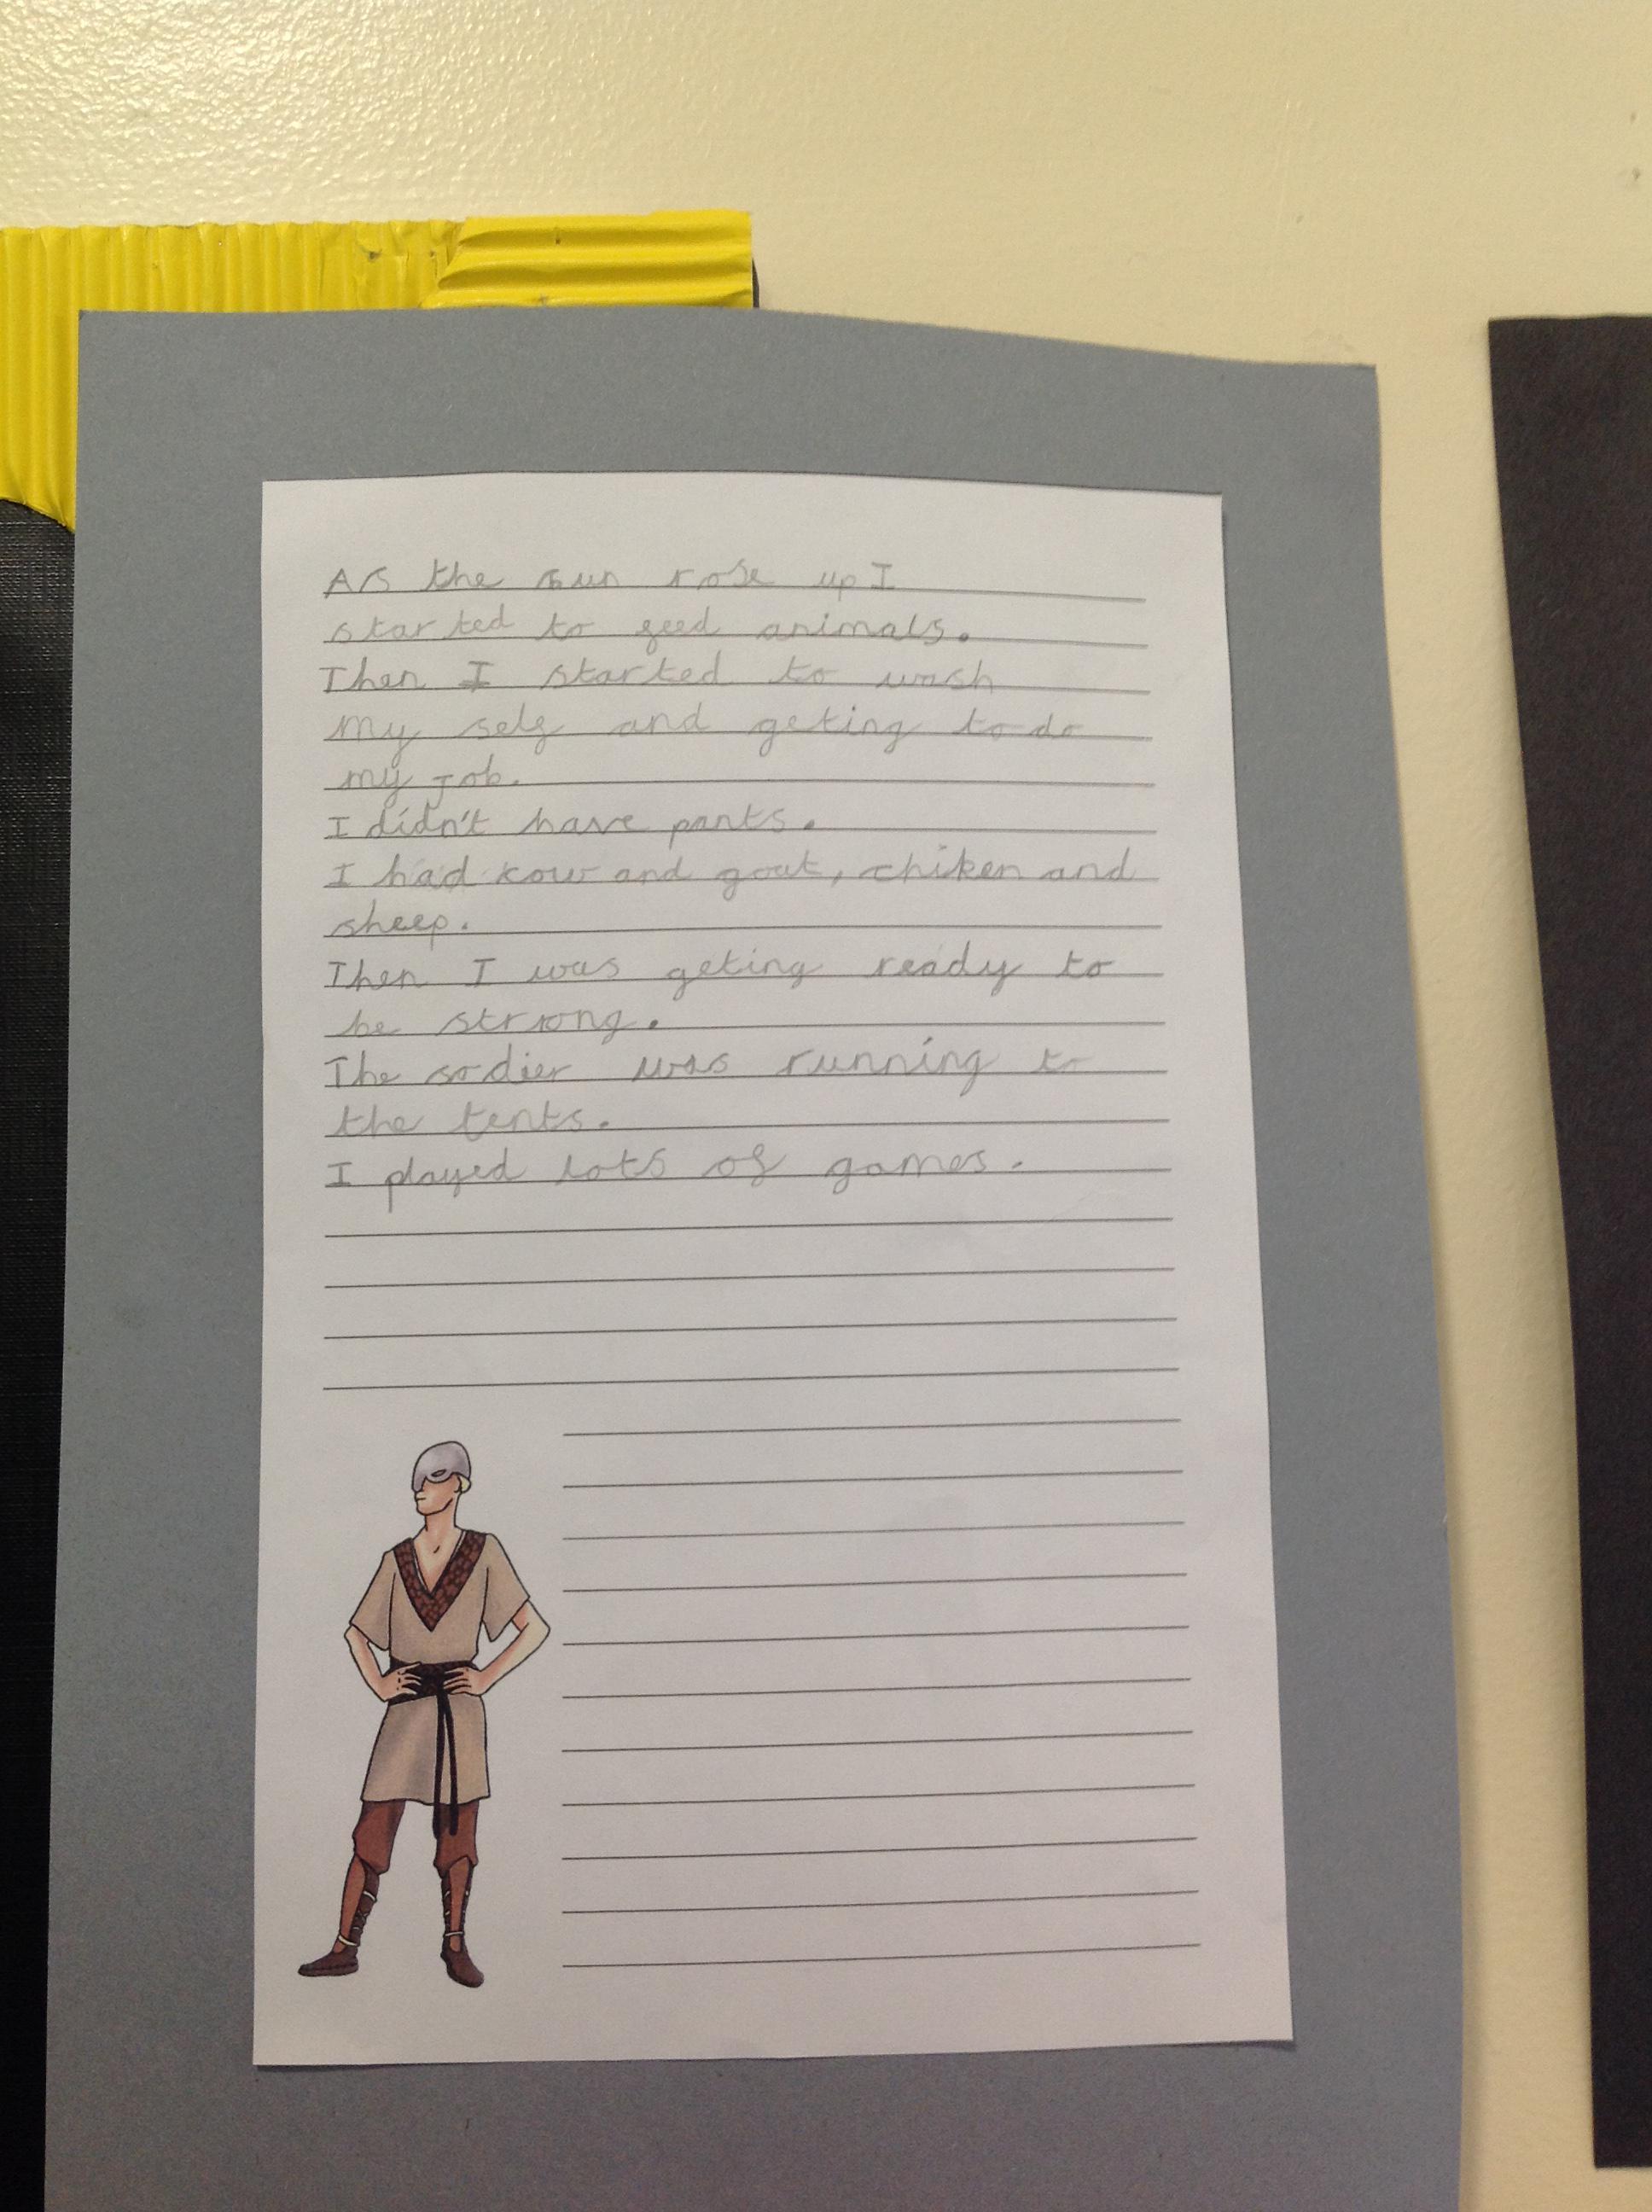 As the sun rose up I
started to feed animals.
Then I started to wash
my self and geting to do
my job.
I didn't have pants.
I had kow and goat, chiken and
sheep.
Then I was geting ready to
be strong.
The sodier was running to
the tents.
I played lots of games.